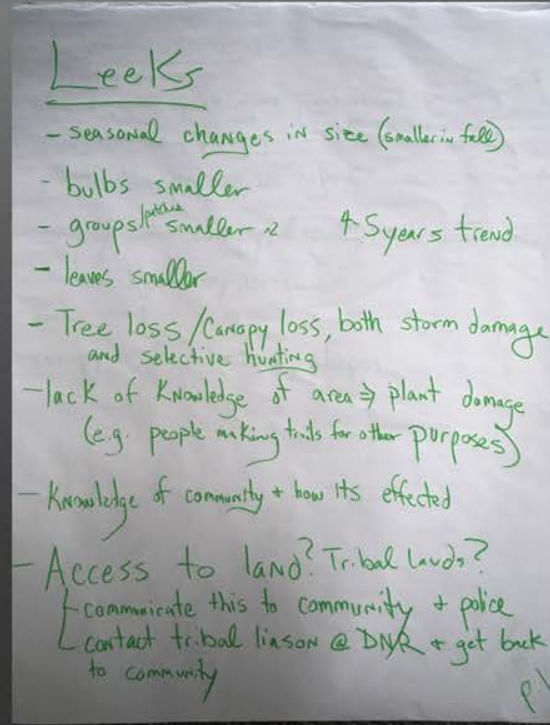 Leeks
- seasonal changes in size (smaller in fall)
- bulbs smaller
- groups/patches smaller 4-5 years trend
- leaves smaller
- Tree loss/Canopy loss, both storm damage
and selective hunting
- lack of knowledge of area ⇒ plant damage
(e.g. people making trails for other purposes)
- Knowledge of community + how its effected
- Access to land? Tribal lands?
communicate this to community + police
contact tribal liason @ DNR + get back
to community
p.1